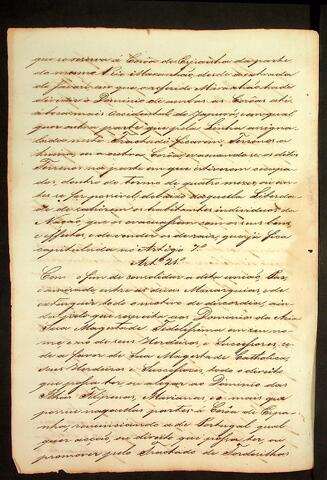 que se reserva á Corôa de Espanha da parte
do mesmo Rio Maranhão, desde a entrada
do Javari em que o referido Maranhão hade
dividir o Dominio de ambas as Corôas até
a boca mais Occidental do Japurá; em qual
quer outra parte que pela Linha assigna-
lada neste Tractado ficarem Terrenos a
huma, ou a outra Corôa, evacuando-se os ditos
Terrenos na parte em que estiverem occupa-
dos, dentro do termo de quatro mezes, ou an-
tes se for possivel, debaixo daquella Liberda-
de de sahirem os habitantes individuos da
Nação, que os evacuar com os seus bens,
e effeitos, e de vender os de raiz, que já fica
capitulada no Artigo 7º
Artº 21º
Com o fim de consolidar a dita união, Paz,
e amizade entre as duas Monarquias, e de
extinguir todo o motivo de discordia, ain-
da pelo que respeita aos Dominios da Asia
Sua Magestade Fidelissima em seu no-
me, e no de seus Herdeiros, e Successores, ce-
de a favor de Sua Magestade Catholica,
e seus Herdeiros e Successores, todo o direito
que possa ter, ou alegar ao Dominio das
Ilhas Filipinas, Marianas, e o mais que
possue naquellas partes a Corôa de Espa-
nha, renunciando a de Portugal qual
quer acção, ou direito que possa ter, ou
promover pelo Tractado de Tordesilhas